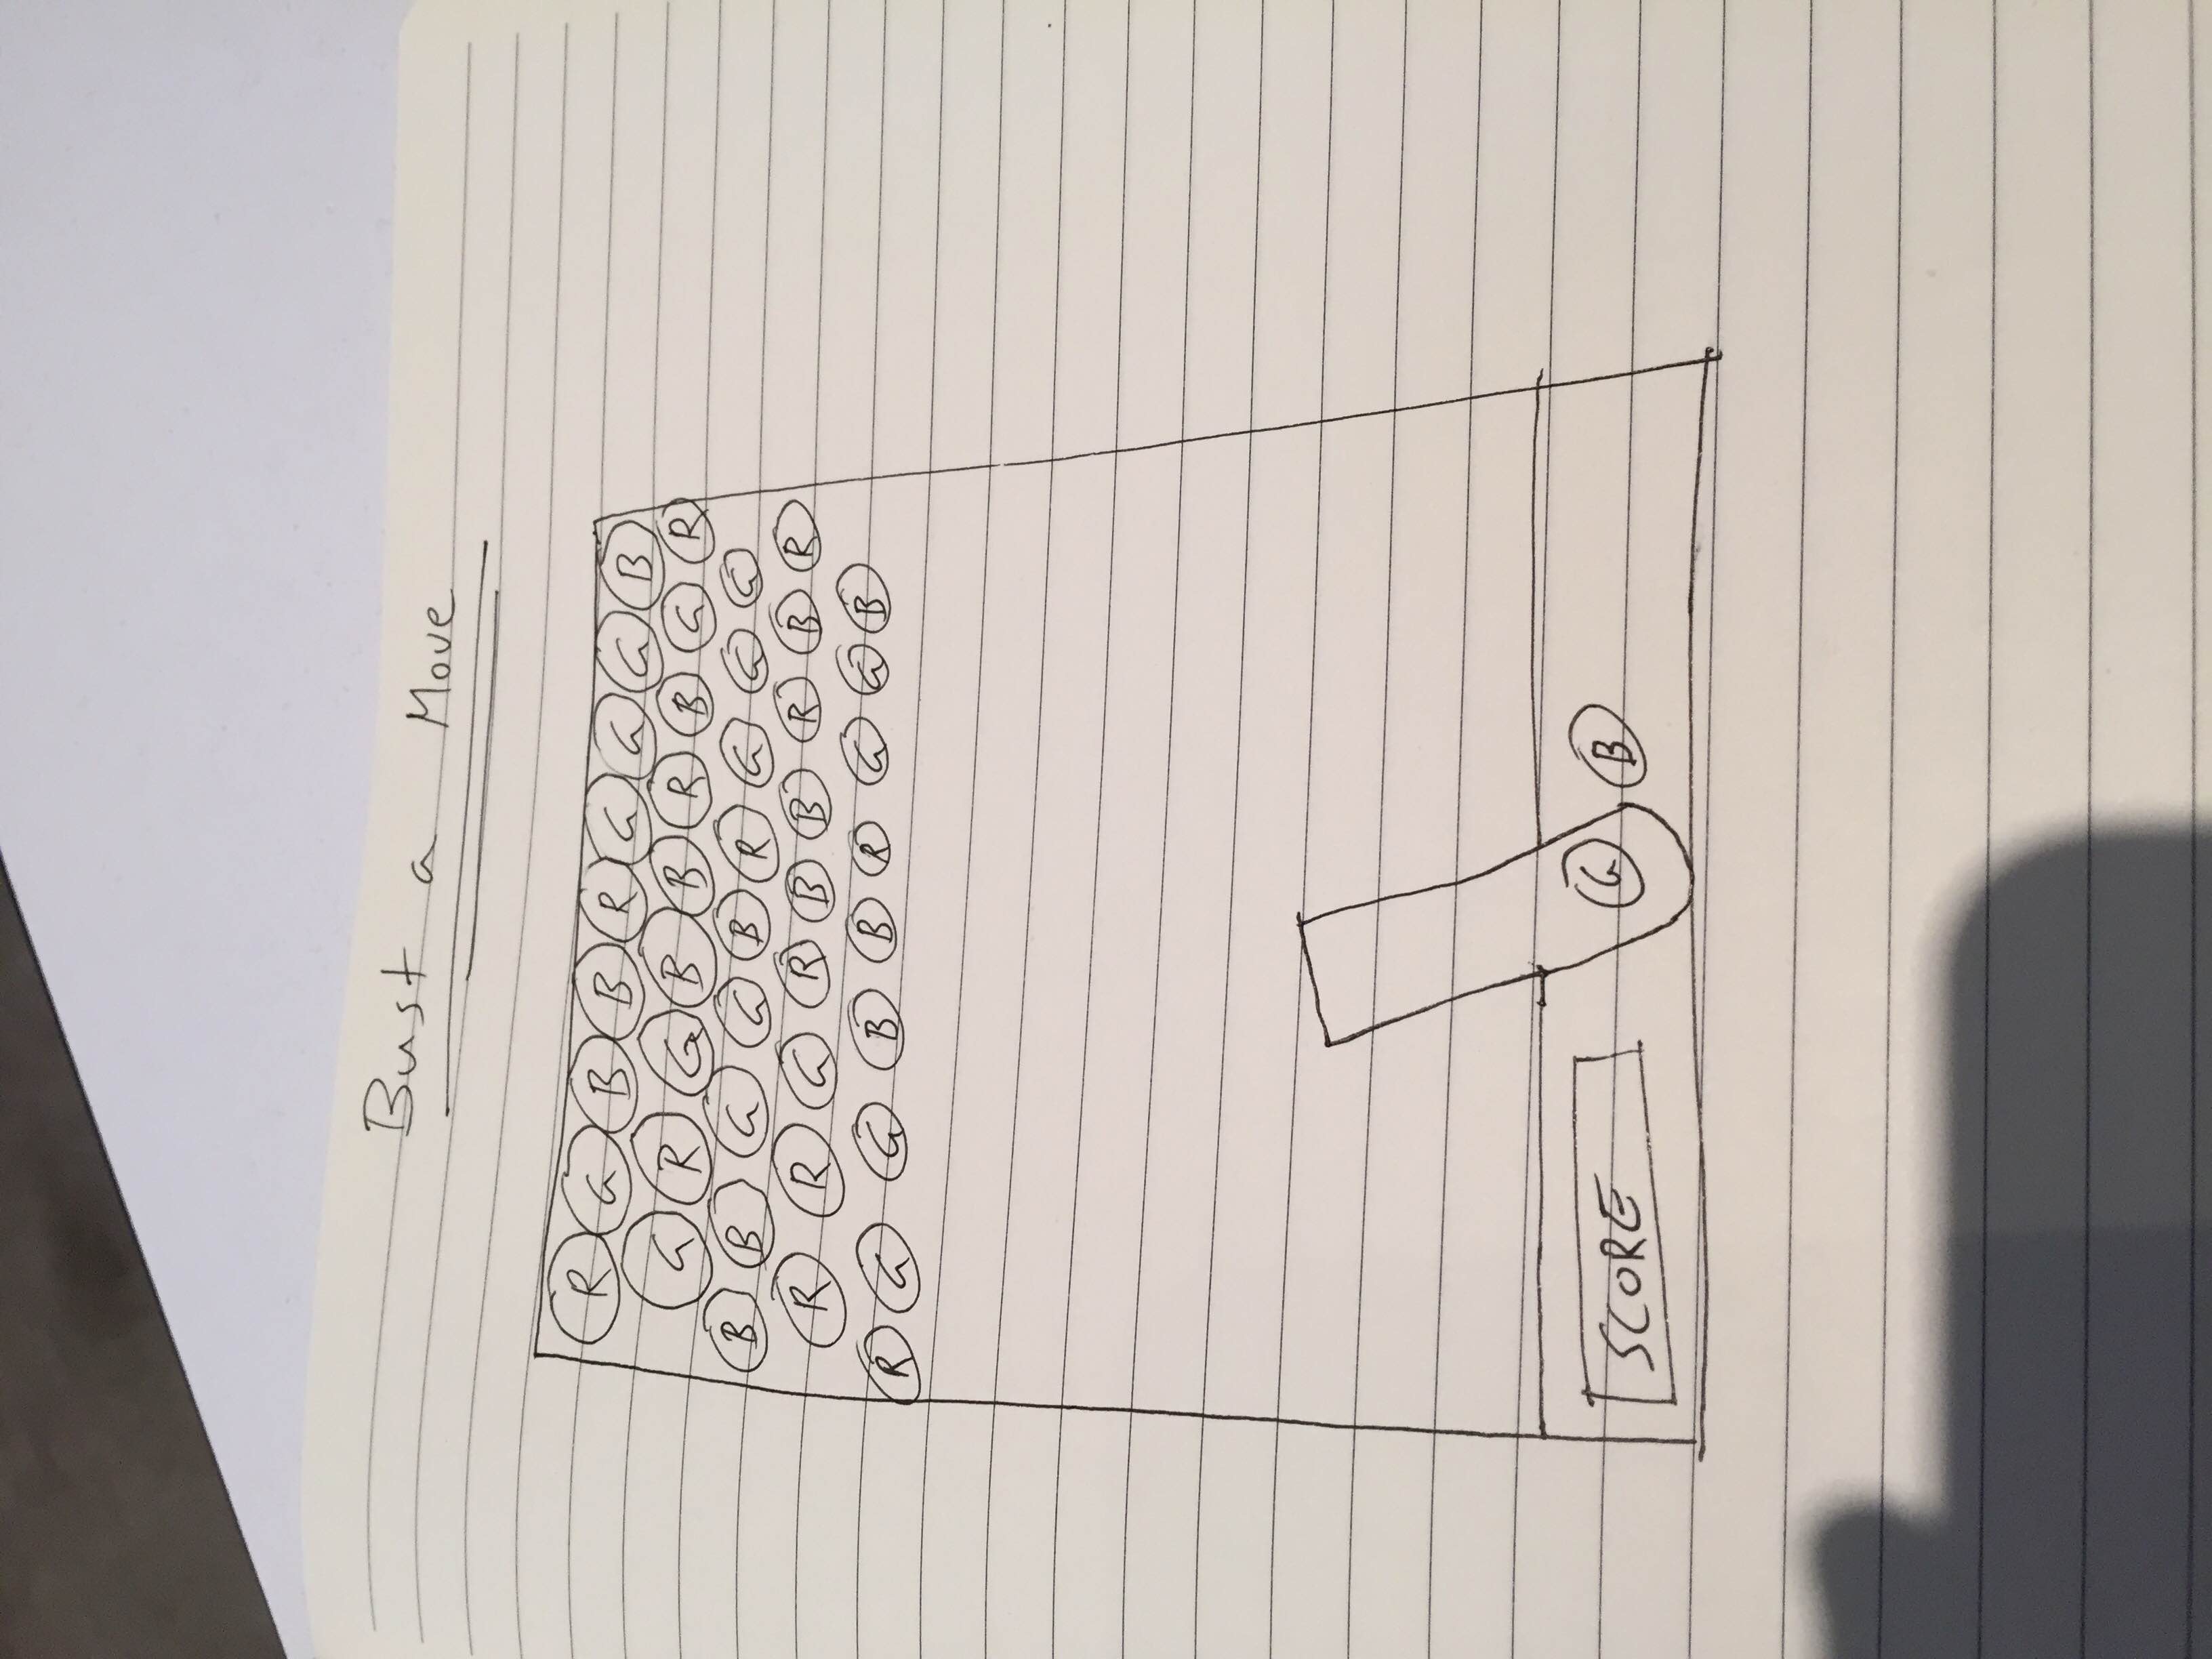 Bust a Move
R G B B R G G G B
G R G B B R B G R
B B G G B R G G G
R R G R B B R B R
R G G B B R G G B
SCORE G B